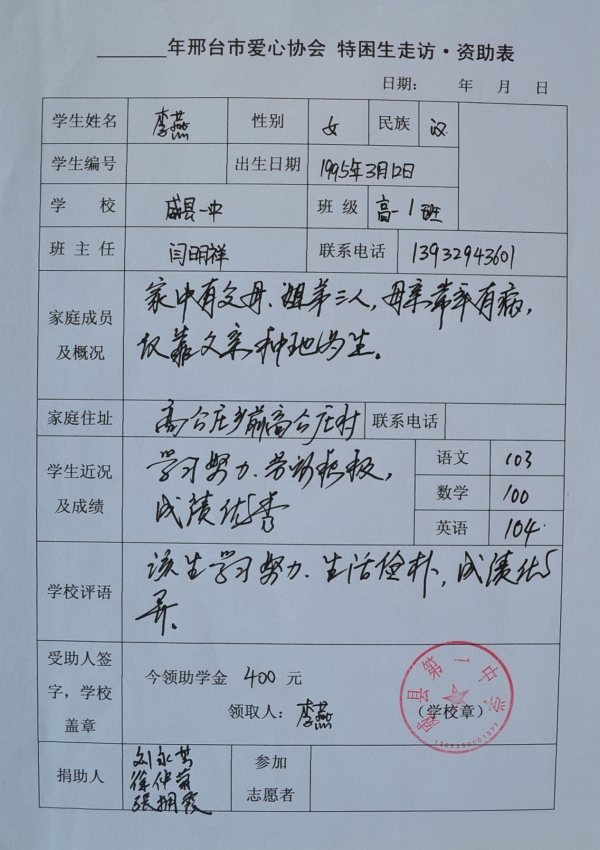 年邢台市爱心协会 特困生走访·资助表
日期: 年 月 日
学生姓名 李燕 性别 女 民族 汉
学生编号 出生日期 1995年3月12日
学 校 威县一中 班级 高一1班
班主任 闫明祥 联系电话 13932943601
家庭成员及概况
家中有父母、姐弟三人,母亲常年有病,
仅靠父亲种地为生。
家庭住址 高公庄乡前高公庄村 联系电话
学生近况及成绩
学习努力、劳动积极,
成绩优秀
语文 103
数学 100
英语 104
学校评语
该生学习努力、生活俭朴,成绩优
异。
受助人签字,学校盖章
今领助学金 400 元
领取人: 李燕
(学校章)
威县第一中学
捐助人
刘永
徐仲
张拥霞
参加志愿者